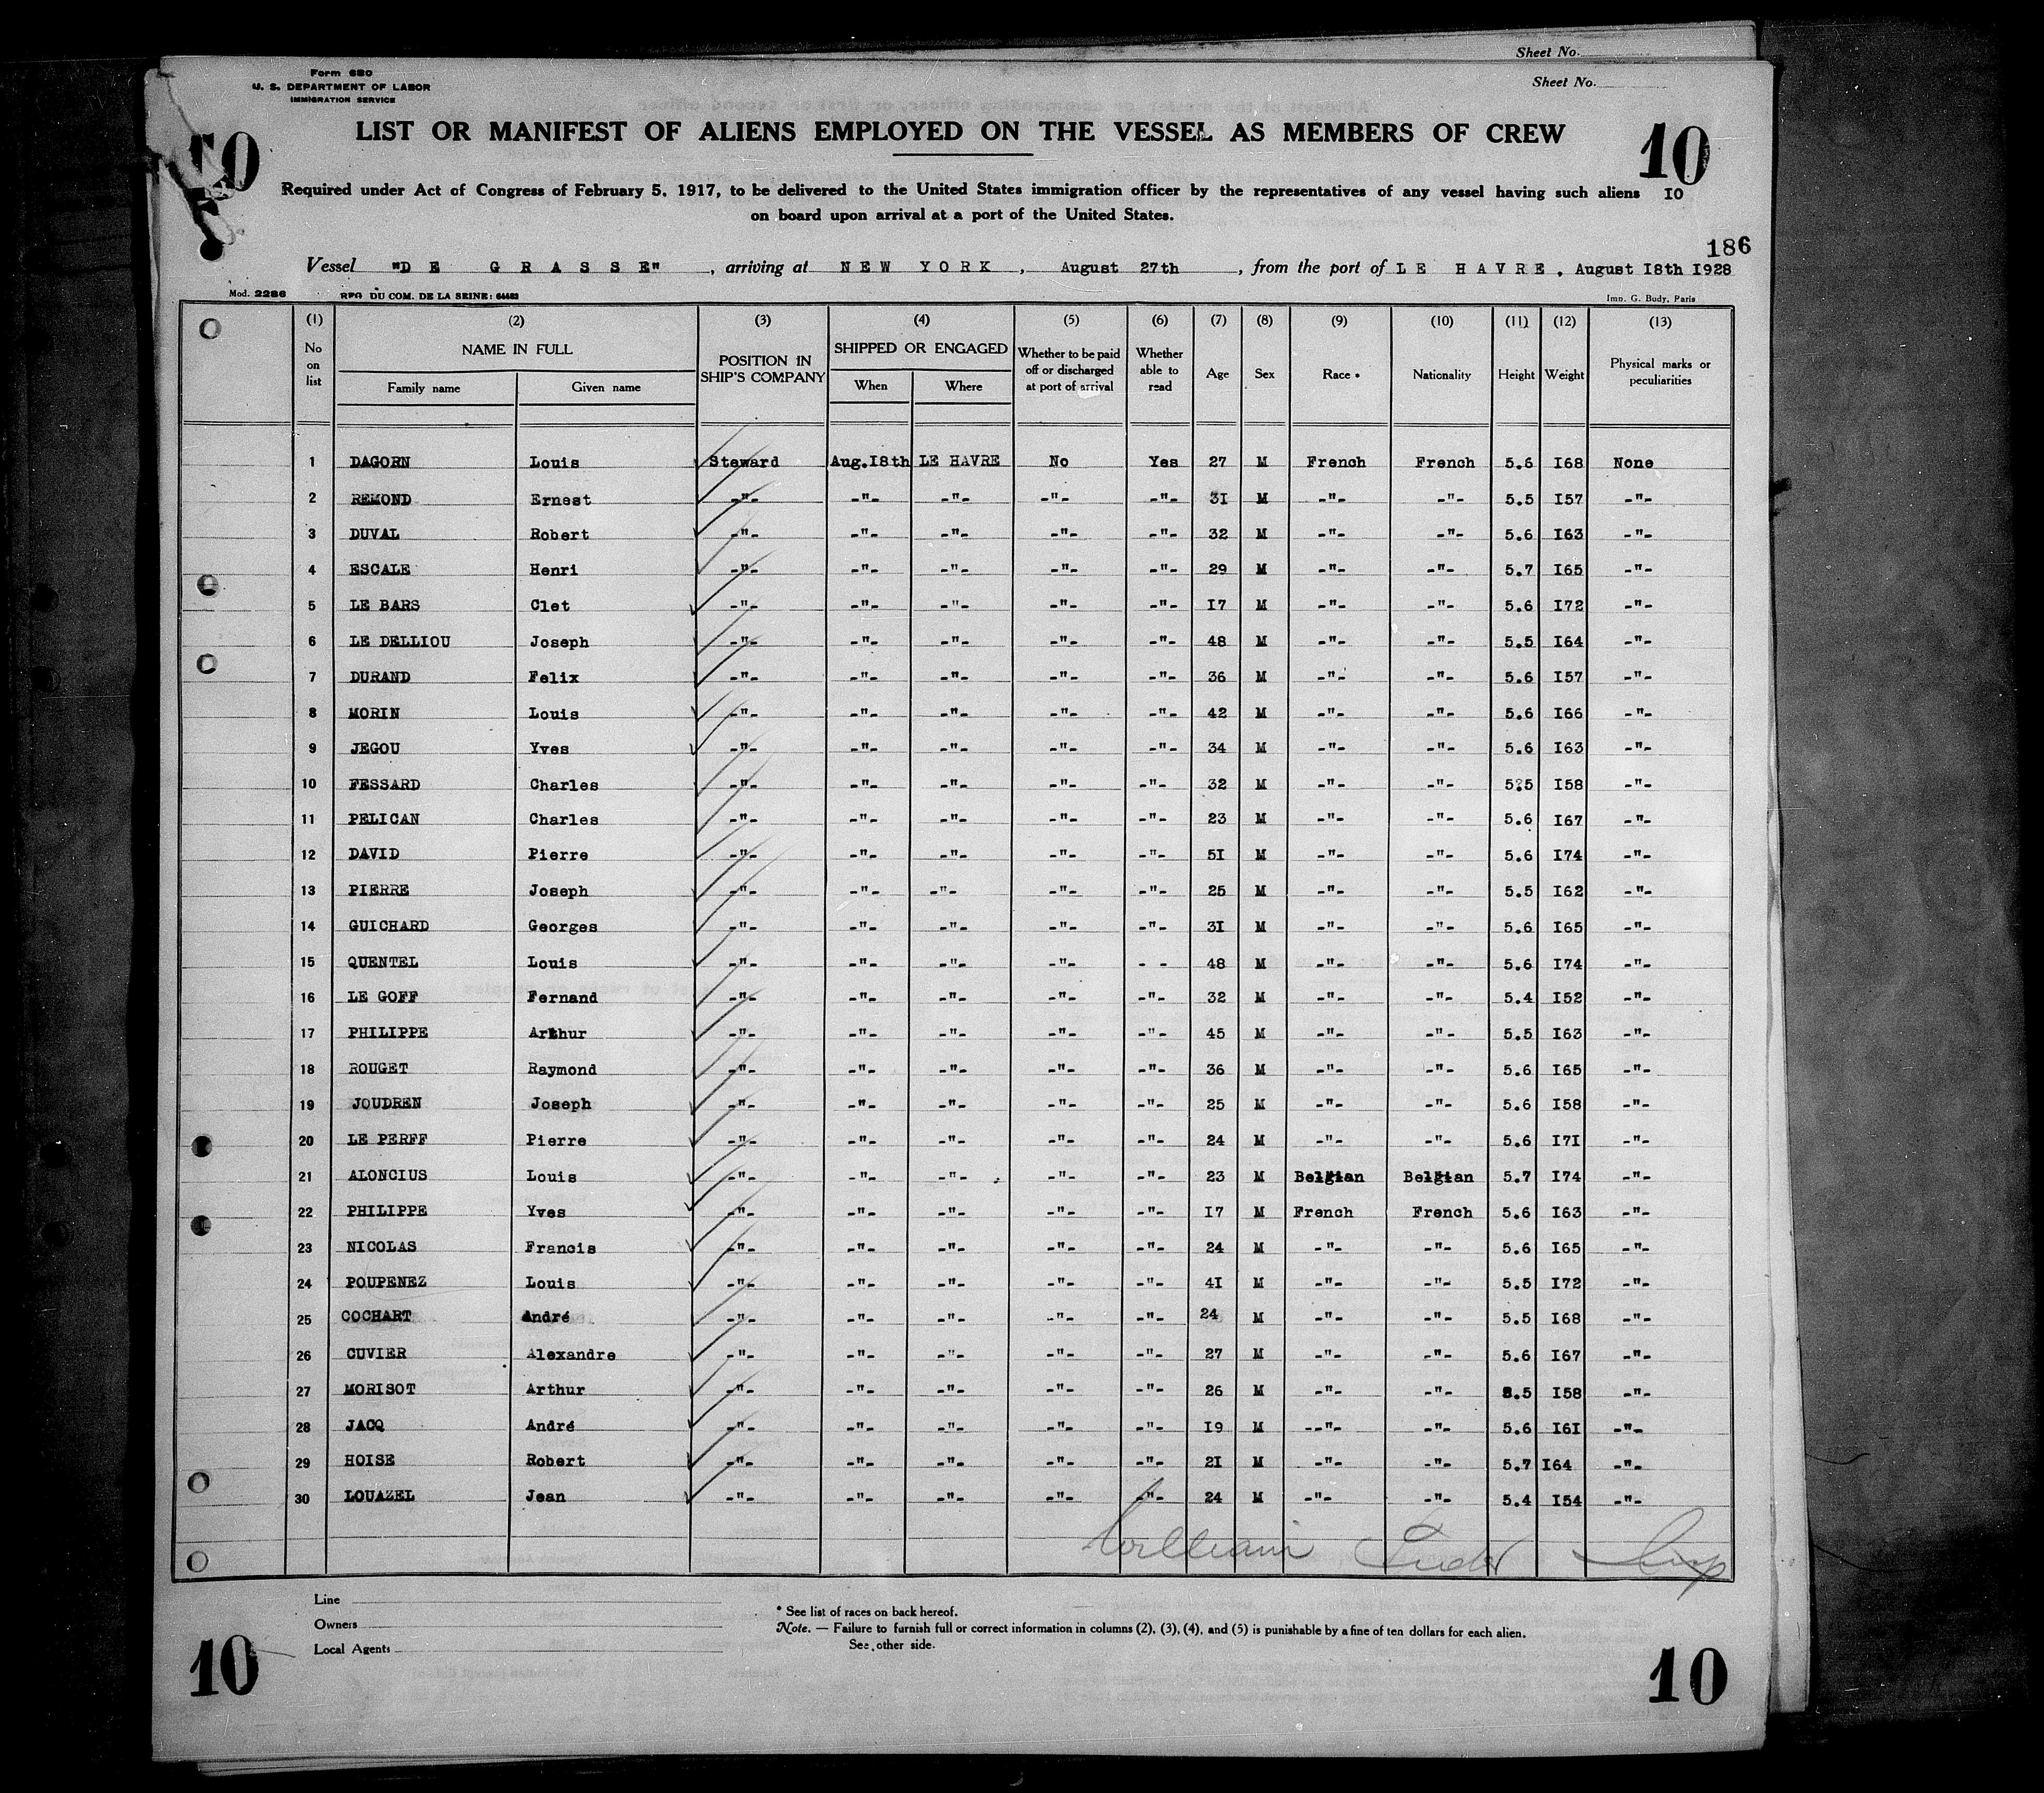 Sheet No.
Form 680
U. S. DEPARTMENT OF LABOR
IMMIGRATION SERVICE
Sheet No.
10 LIST OR MANIFEST OF ALIENS EMPLOYED ON THE VESSEL AS MEMBERS OF CREW 10
Required under Act of Congress of February 5, 1917, to be delivered to the United States immigration officer by the representatives of any vessel having such aliens I0
on board upon arrival at a port of the United States.
186
Vessel "D E G R A S S E" , arriving at N E W Y O R K , August 27th , from the port of L E H A V R E , August I8th I928
Mod. 2286 REG DU COM. DE LA SEINE: 64483 Imp. G. Budy, Paris
(1) (2) (3) (4) (5) (6) (7) (8) (9) (10) (11) (12) (13)
No on list NAME IN FULL Family name Given name POSITION IN SHIP'S COMPANY SHIPPED OR ENGAGED When Where Whether to be paid off or discharged at port of arrival Whether able to read Age Sex Race * Nationality Height Weight Physical marks or peculiarities
1 DAGORN Louis Steward Aug.I8th LE HAVRE No Yes 27 M French French 5.6 I68 None
2 REMOND Ernest -"- -"- -"- -"- -"- 3I M -"- -"- 5.5 I57 -"-
3 DUVAL Robert -"- -"- -"- -"- -"- 32 M -"- -"- 5.6 I63 -"-
4 ESCALE Henri -"- -"- -"- -"- -"- 29 M -"- -"- 5.7 I65 -"-
5 LE BARS Clet -"- -"- -"- -"- -"- I7 M -"- -"- 5.6 I72 -"-
6 LE DELLIOU Joseph -"- -"- -"- -"- -"- 48 M -"- -"- 5.5 I64 -"-
7 DURAND Felix -"- -"- -"- -"- -"- 36 M -"- -"- 5.6 I57 -"-
8 MORIN Louis -"- -"- -"- -"- -"- 42 M -"- -"- 5.6 I66 -"-
9 JEGOU Yves -"- -"- -"- -"- -"- 34 M -"- -"- 5.6 I63 -"-
10 FESSARD Charles -"- -"- -"- -"- -"- 32 M -"- -"- 5.5 I58 -"-
11 PELICAN Charles -"- -"- -"- -"- -"- 23 M -"- -"- 5.6 I67 -"-
12 DAVID Pierre -"- -"- -"- -"- -"- 5I M -"- -"- 5.6 I74 -"-
13 PIERRE Joseph -"- -"- -"- -"- -"- 25 M -"- -"- 5.5 I62 -"-
14 GUICHARD Georges -"- -"- -"- -"- -"- 3I M -"- -"- 5.6 I65 -"-
15 QUENTEL Louis -"- -"- -"- -"- - - 48 M -"- -"- 5.6 I74 -"-
16 LE GOFF Fernand -"- -"- -"- -"- -"- 32 M -"- -"- 5.4 I52 -"-
17 PHILIPPE Arthur -"- -"- -"- -"- -"- 45 M -"- -"- 5.5 I63 -"-
18 ROUGET Raymond -"- -"- -"- -"- -"- 36 M -"- -"- 5.6 I65 -"-
19 JOUDREN Joseph -"- -"- -"- -"- -"- 25 M -"- -"- 5.6 I58 -"-
20 LE PERFF Pierre -"- -"- -"- -"- -"- 24 M -"- -"- 5.6 I7I -"-
21 ALONCIUS Louis -"- -"- -"- -"- -"- 23 M Belgian Belgian 5.7 I74 -"-
22 PHILIPPE Yves -"- -"- -"- -"- -"- I7 M French French 5.6 I63 -"-
23 NICOLAS Francis -"- -"- -"- -"- -"- 24 M -"- -"- 5.6 I65 -"-
24 POUPENEZ Louis -"- -"- -"- -"- -"- 4I M -"- -"- 5.5 I72 -"-
25 COCHART André -"- -"- -"- -"- -"- 24 M -"- -"- 5.5 I68 -"-
26 CUVIER Alexandre -"- -"- -"- -"- -"- 27 M -"- -"- 5.6 I67 -"-
27 MORISOT Arthur -"- -"- -"- -"- -"- 26 M -"- -"- 5.5 I58 -"-
28 JACQ André -"- -"- -"- -"- -"- I9 M --"- -"- 5.6 I6I -"-
29 HOISE Robert -"- -"- -"- -"- -"- 2I M -"- -"- 5.7 I64 -"-
30 LOUAZEL Jean -"- -"- -"- -"- -"- 24 M -"- -"- 5.4 I54 -"-
William
Line
Owners
Local Agents
* See list of races on back hereof.
Note. — Failure to furnish full or correct information in columns (2), (3), (4), and (5) is punishable by a fine of ten dollars for each alien.
See other side.
10 10